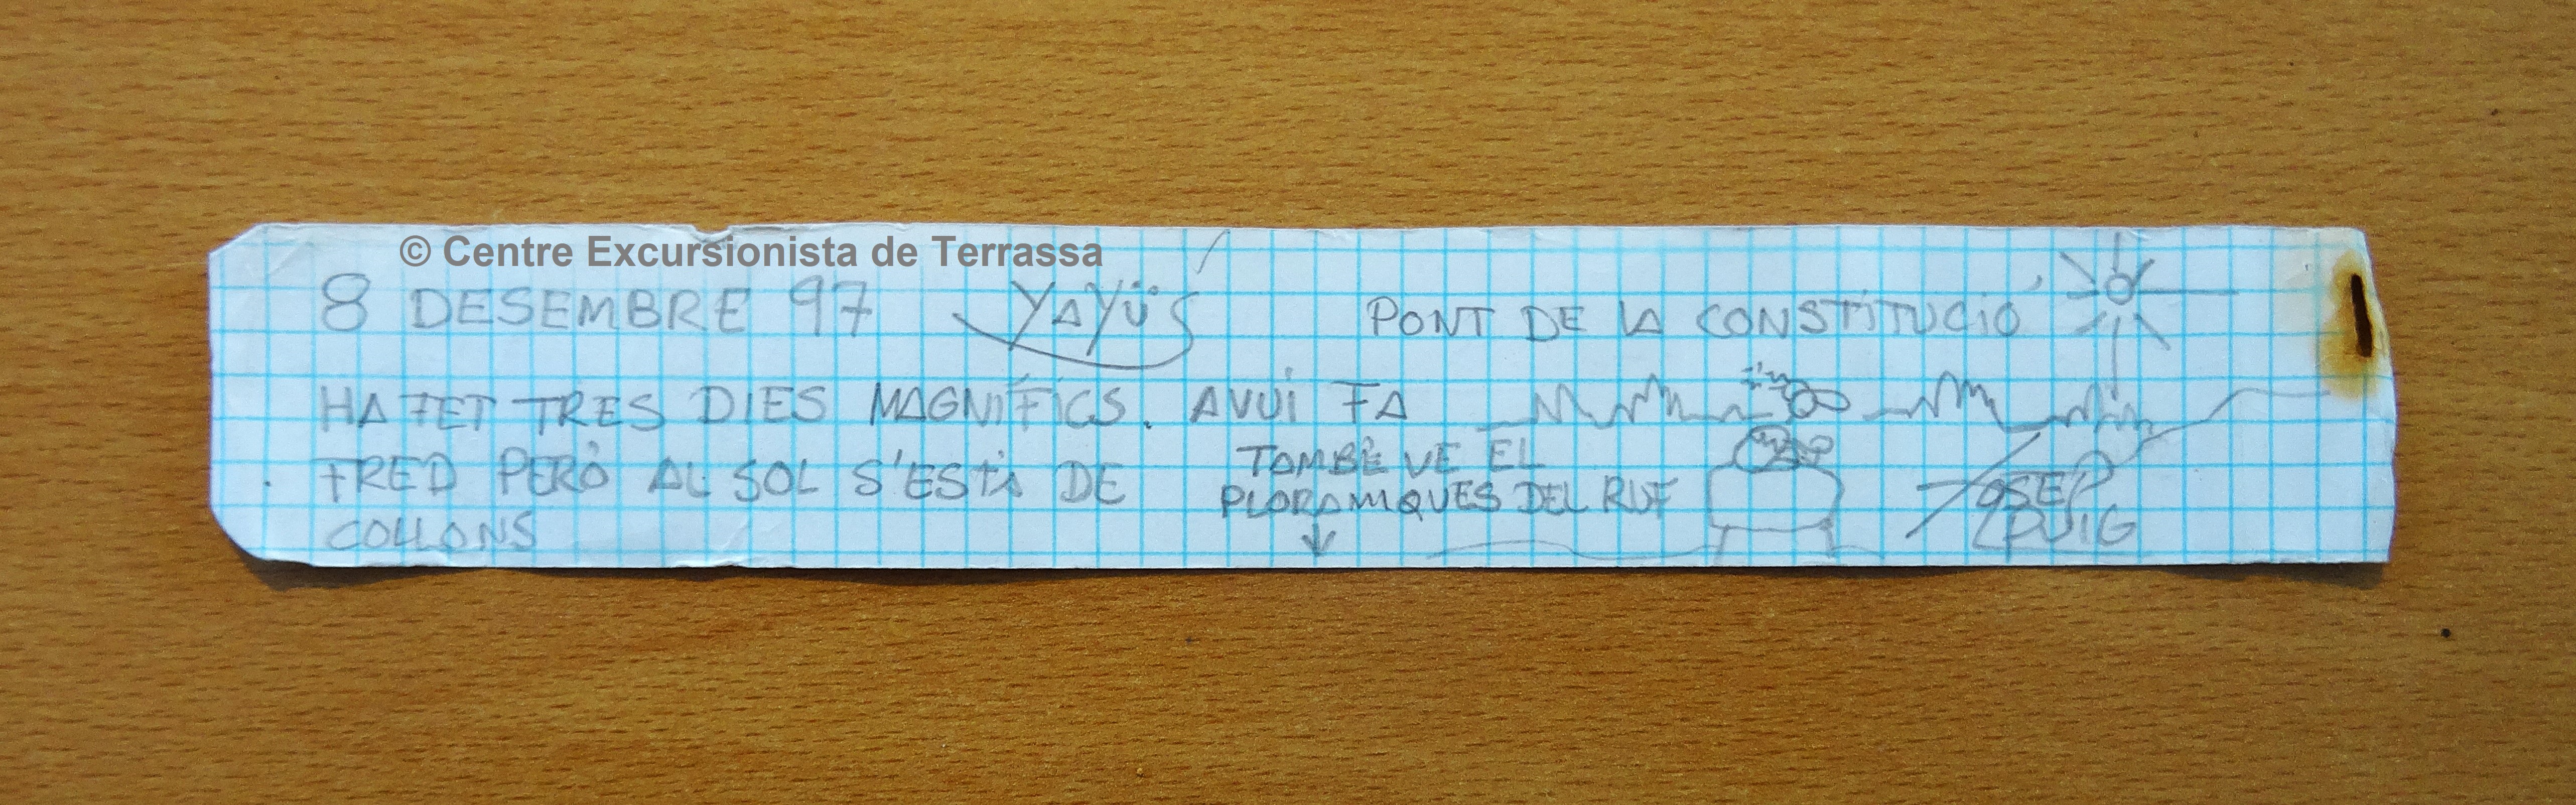 © Centre Excursionista de Terrassa
8 DESEMBRE 97 YAYÜS PONT DE LA CONSTITUCIÓ
HA FET TRES DIES MAGNÍFICS. AVUI FA
FRED PERÒ AL SOL S'ESTÀ DE
COLLONS
TAMBÉ VE EL
PLORAMIQUES DEL RUF
JOSEP
PUIG